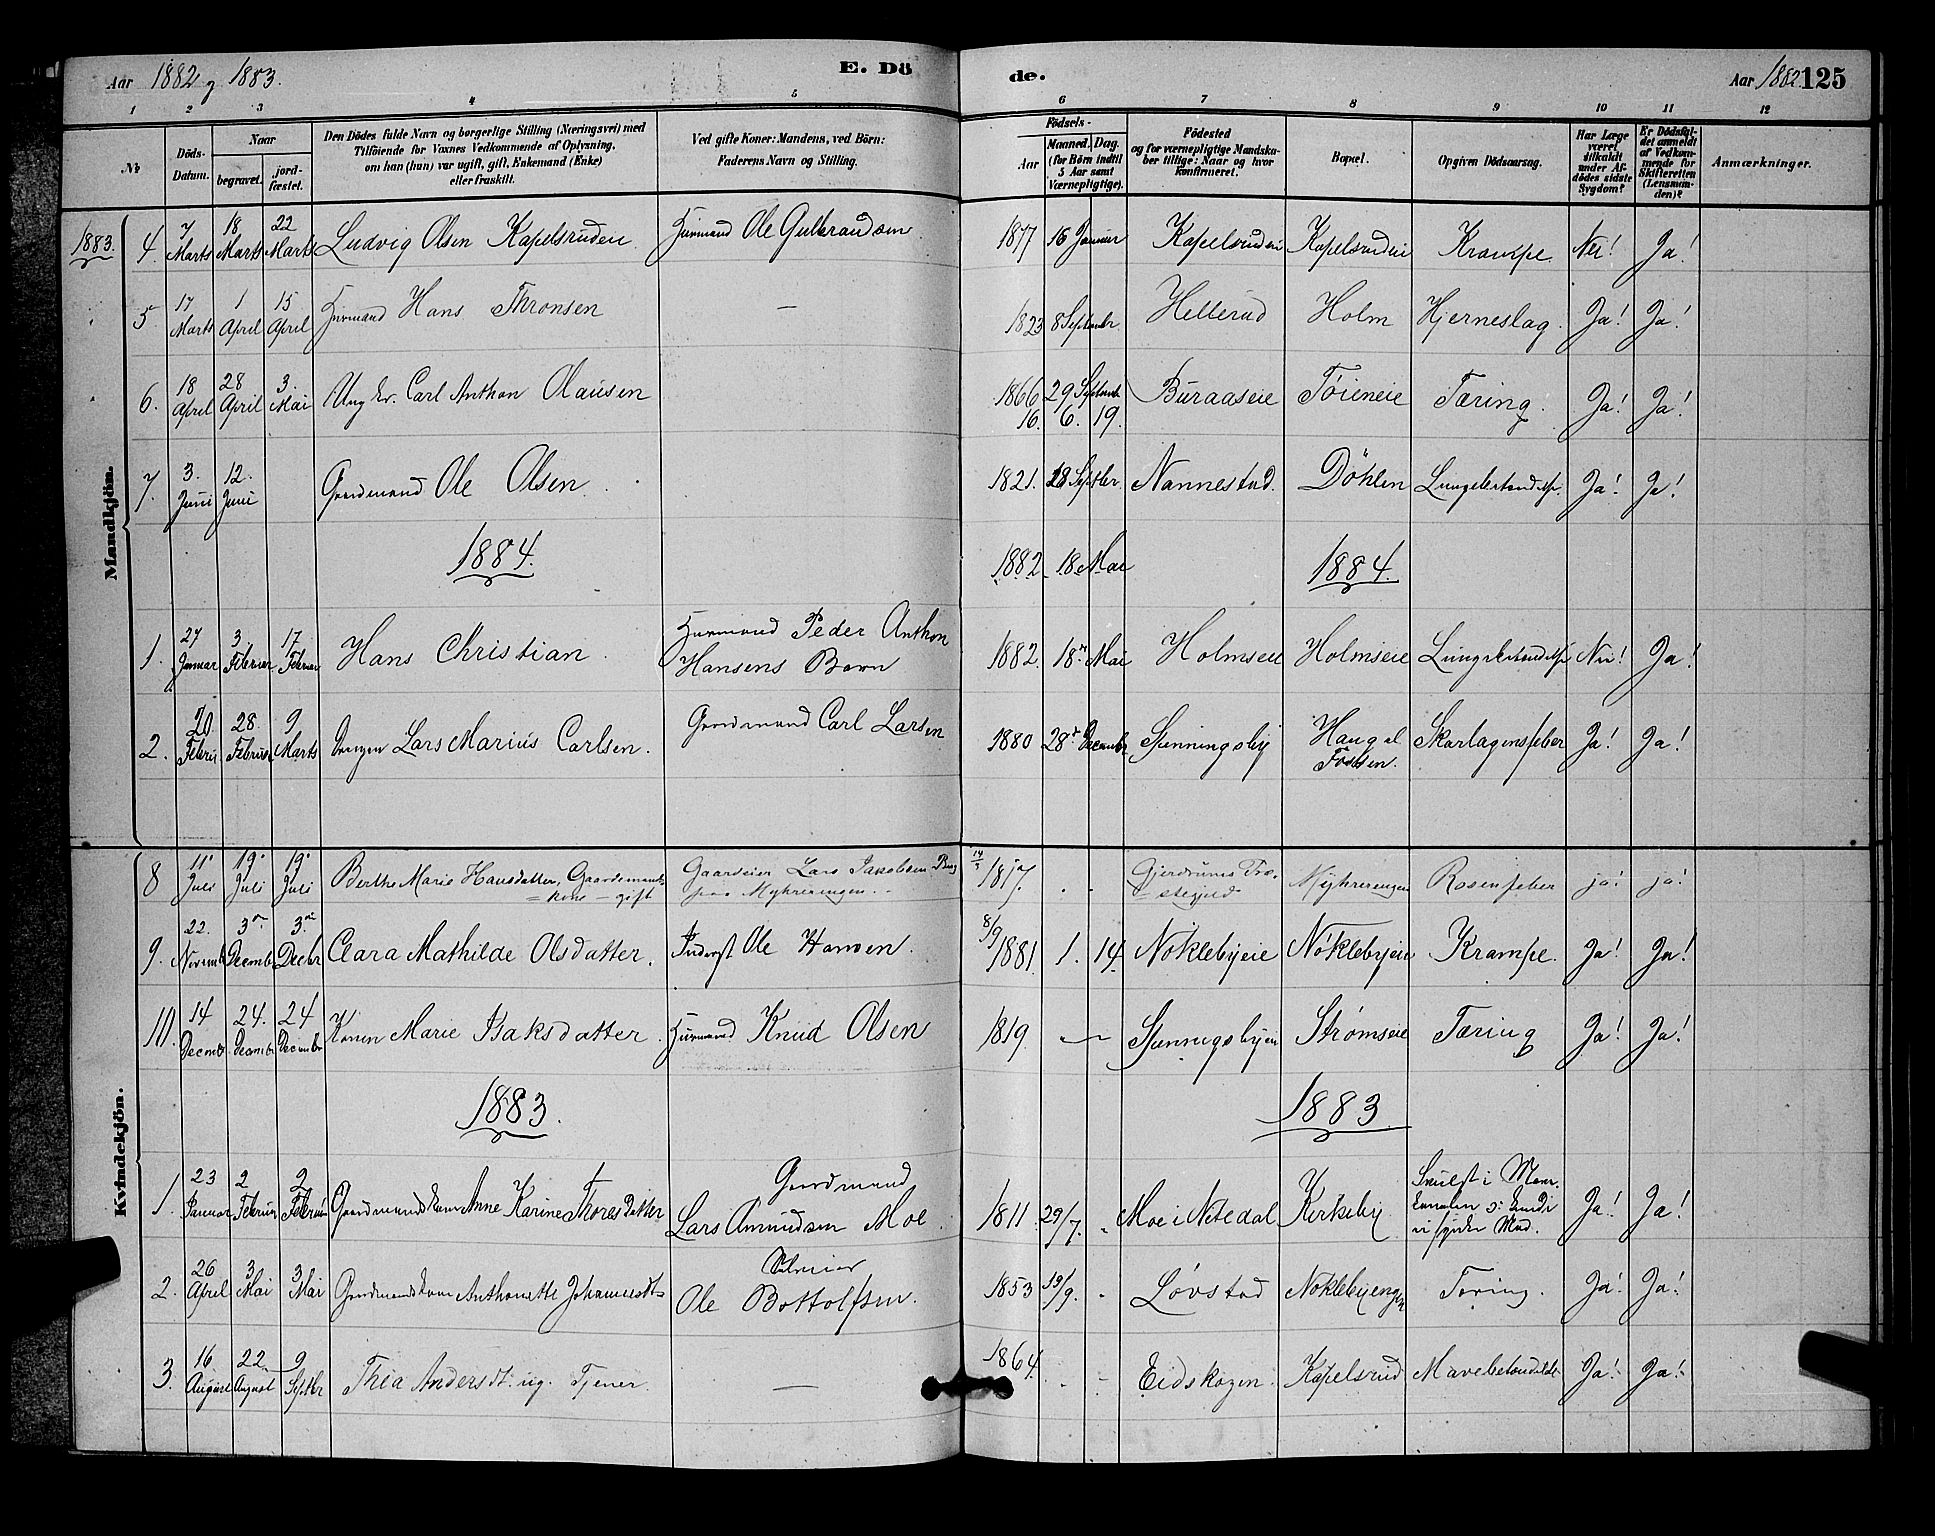 Aar 1882 g 1883. E. Dö de. Aar 1882 125
1 2 3 4 5 6 7 8 9 10 11 12
№ Döds-Datum. Naar begravet. jordfæstet. Den Dödes fulde Navn og borgerlige Stilling (Næringsvei) med Tilföiende for Voxnes Vedkommende af Oplysning, om han (hun) var ugift, gift, Enkemand (Enke) eller fraskilt. Ved gifte Koner: Mandens, ved Börn: Faderens Navn og Stilling. Födsels- Aar Maaned, Dag. (for Börn indtil 5 Aar samt Værnepligtige). Födested og for værnepligtige Mandskaber tillige: Naar og hvor konfirmeret. Bopæl. Opgiven Dödsaarsag. Har Læge været tilkaldt under Afdödes sidste Sygdom? Er Dödsfaldet anmeldt af Vedkommende for Skifteretten (Lensmanden)? Anmærkninger.
Mandkjön.
1883. 4. 7 Marts 18 Marts 22 Marts Ludvig Olsen Kapelsruden Husmand Ole Gulbrandsen 1877 16 Januar Kapelsruden Kapelsruden Krampe. Nei! Ja!
5 17 Marts 1 April 15 April Husmand Hans Thronsen — 1823 8 Septembr. Hellerud Holm Hjerneslag. Ja! Ja!
6. 18 April 28 April 3. Mai Ung kr. Carl Anthon Olausen 1866 29 Septemb Buraaseie Töieneie Tæring. Ja! Ja!
16. 6. 19.
7. 3. Juni 12. Juni Gaardmand Ole Olsen. 1821. 28 Septbr. Nannestad. Döhlen Lungebetændelse. Ja! Ja!
1884. 1882 18 Mai 1884.
1. 27 Januar 3. Februar 17 Februar Hans Christian. Husmand Peder Anthon Hansens Barn 1882. 18 Mai Holmseie Holmseie Lungebetændelse Nei! Ja!
2. 20 Februar 28 Februar 9 Marts Drengen Lars Marius Carlsen. Gaardmand Carl Larsen 1880 28 Decembr Spenningsby Haugal Fossen. Skarlagensfeber Ja! Ja!
Kvindekjön.
8 11 Juli 19 Juli 19 Juli Berthe Marie Hansdatter, Gaardmands= kone - gift Gaardeier Lars Jakobsen Myhrerengen 1817. . . Gjerdrums Præstegjeld Myhrerengen Rosenfeber ja! ja!
9. 22. Novemb 3 Decemb 3 Decbr Clara Mathilde Olsdatter. Inderst Ole Hansen. 8/9 1881. 1. 14. Nöklebyeie Nöklebyeie Krampe. Ja! Ja!
10. 14 Decmbr 24. Decembr 24 Decembr Konen Marie Isaksdatter. Husmand Knud Olsen 1819. — Spenningsbyeie Strømseie Tæring Ja! Ja!
1883. 1883.
1. 23 Januar 2 Februar 2 Februar Gaardmandskone Anne Karine Thoresdatter Gaardmand Lars Amundsen Moe. 1811 29/7. . Moe i Nitedal Kirkeby. Ja! Ja!
2. 26 April 3 Mai 3 Mai Gaardmandskone Anthonette Johannesdt= Ole Bottolfsen. 1853 19/9. . Løvstad Noklebyengen Tæring. Ja! Ja!
3. 16 August 22 August 9 Septbr Thea Andersdt. ug. Tjener — 1864. . - Eidskogen. Kapelsrud Mavebetændelse Ja! Ja!